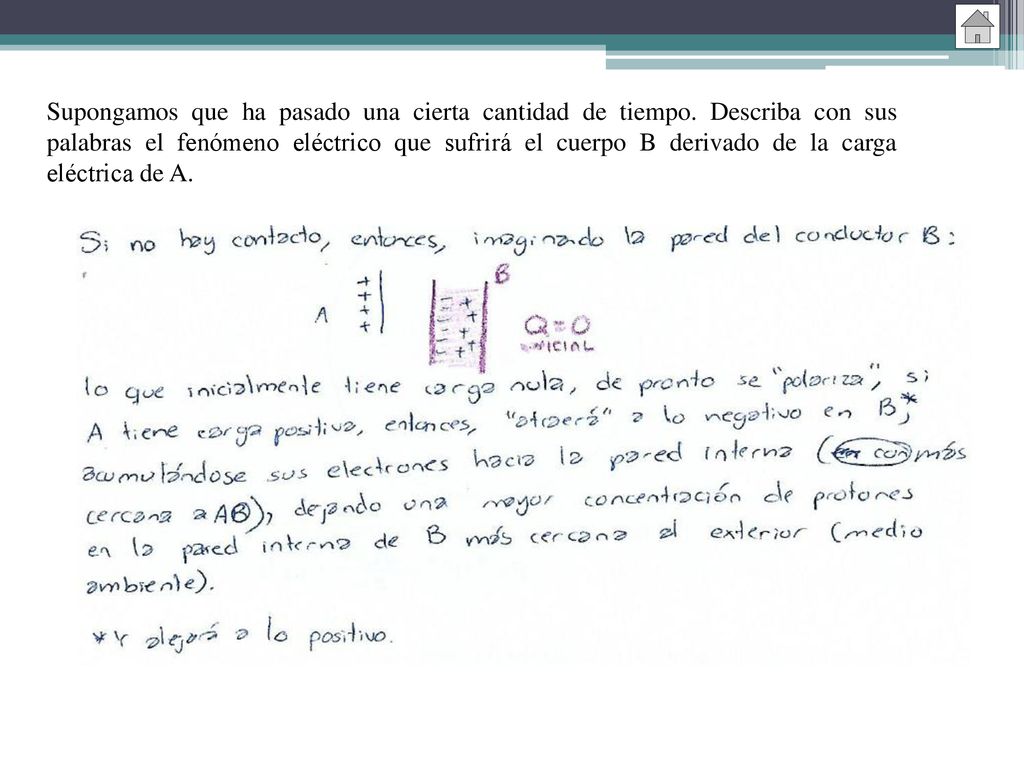 Supongamos que ha pasado una cierta cantidad de tiempo. Describa con sus
palabras el fenómeno eléctrico que sufrirá el cuerpo B derivado de la carga
eléctrica de A.
Si no hay contacto, entonces, imaginando la pared del conductor B:
B
A
+ + + +
- - - - -
+ + + + + +
Q=0
INICIAL
lo que inicialmente tiene carga nula, de pronto se "polariza", si
A tiene carga positiva, entonces, "atraerá" a lo negativo en B,*
acumulándose sus electrones hacia la pared interna (con más
cercana a A), dejando una mayor concentración de protones
en la pared interna de B más cercana al exterior (medio
ambiente).
*Y alejará a lo positivo.